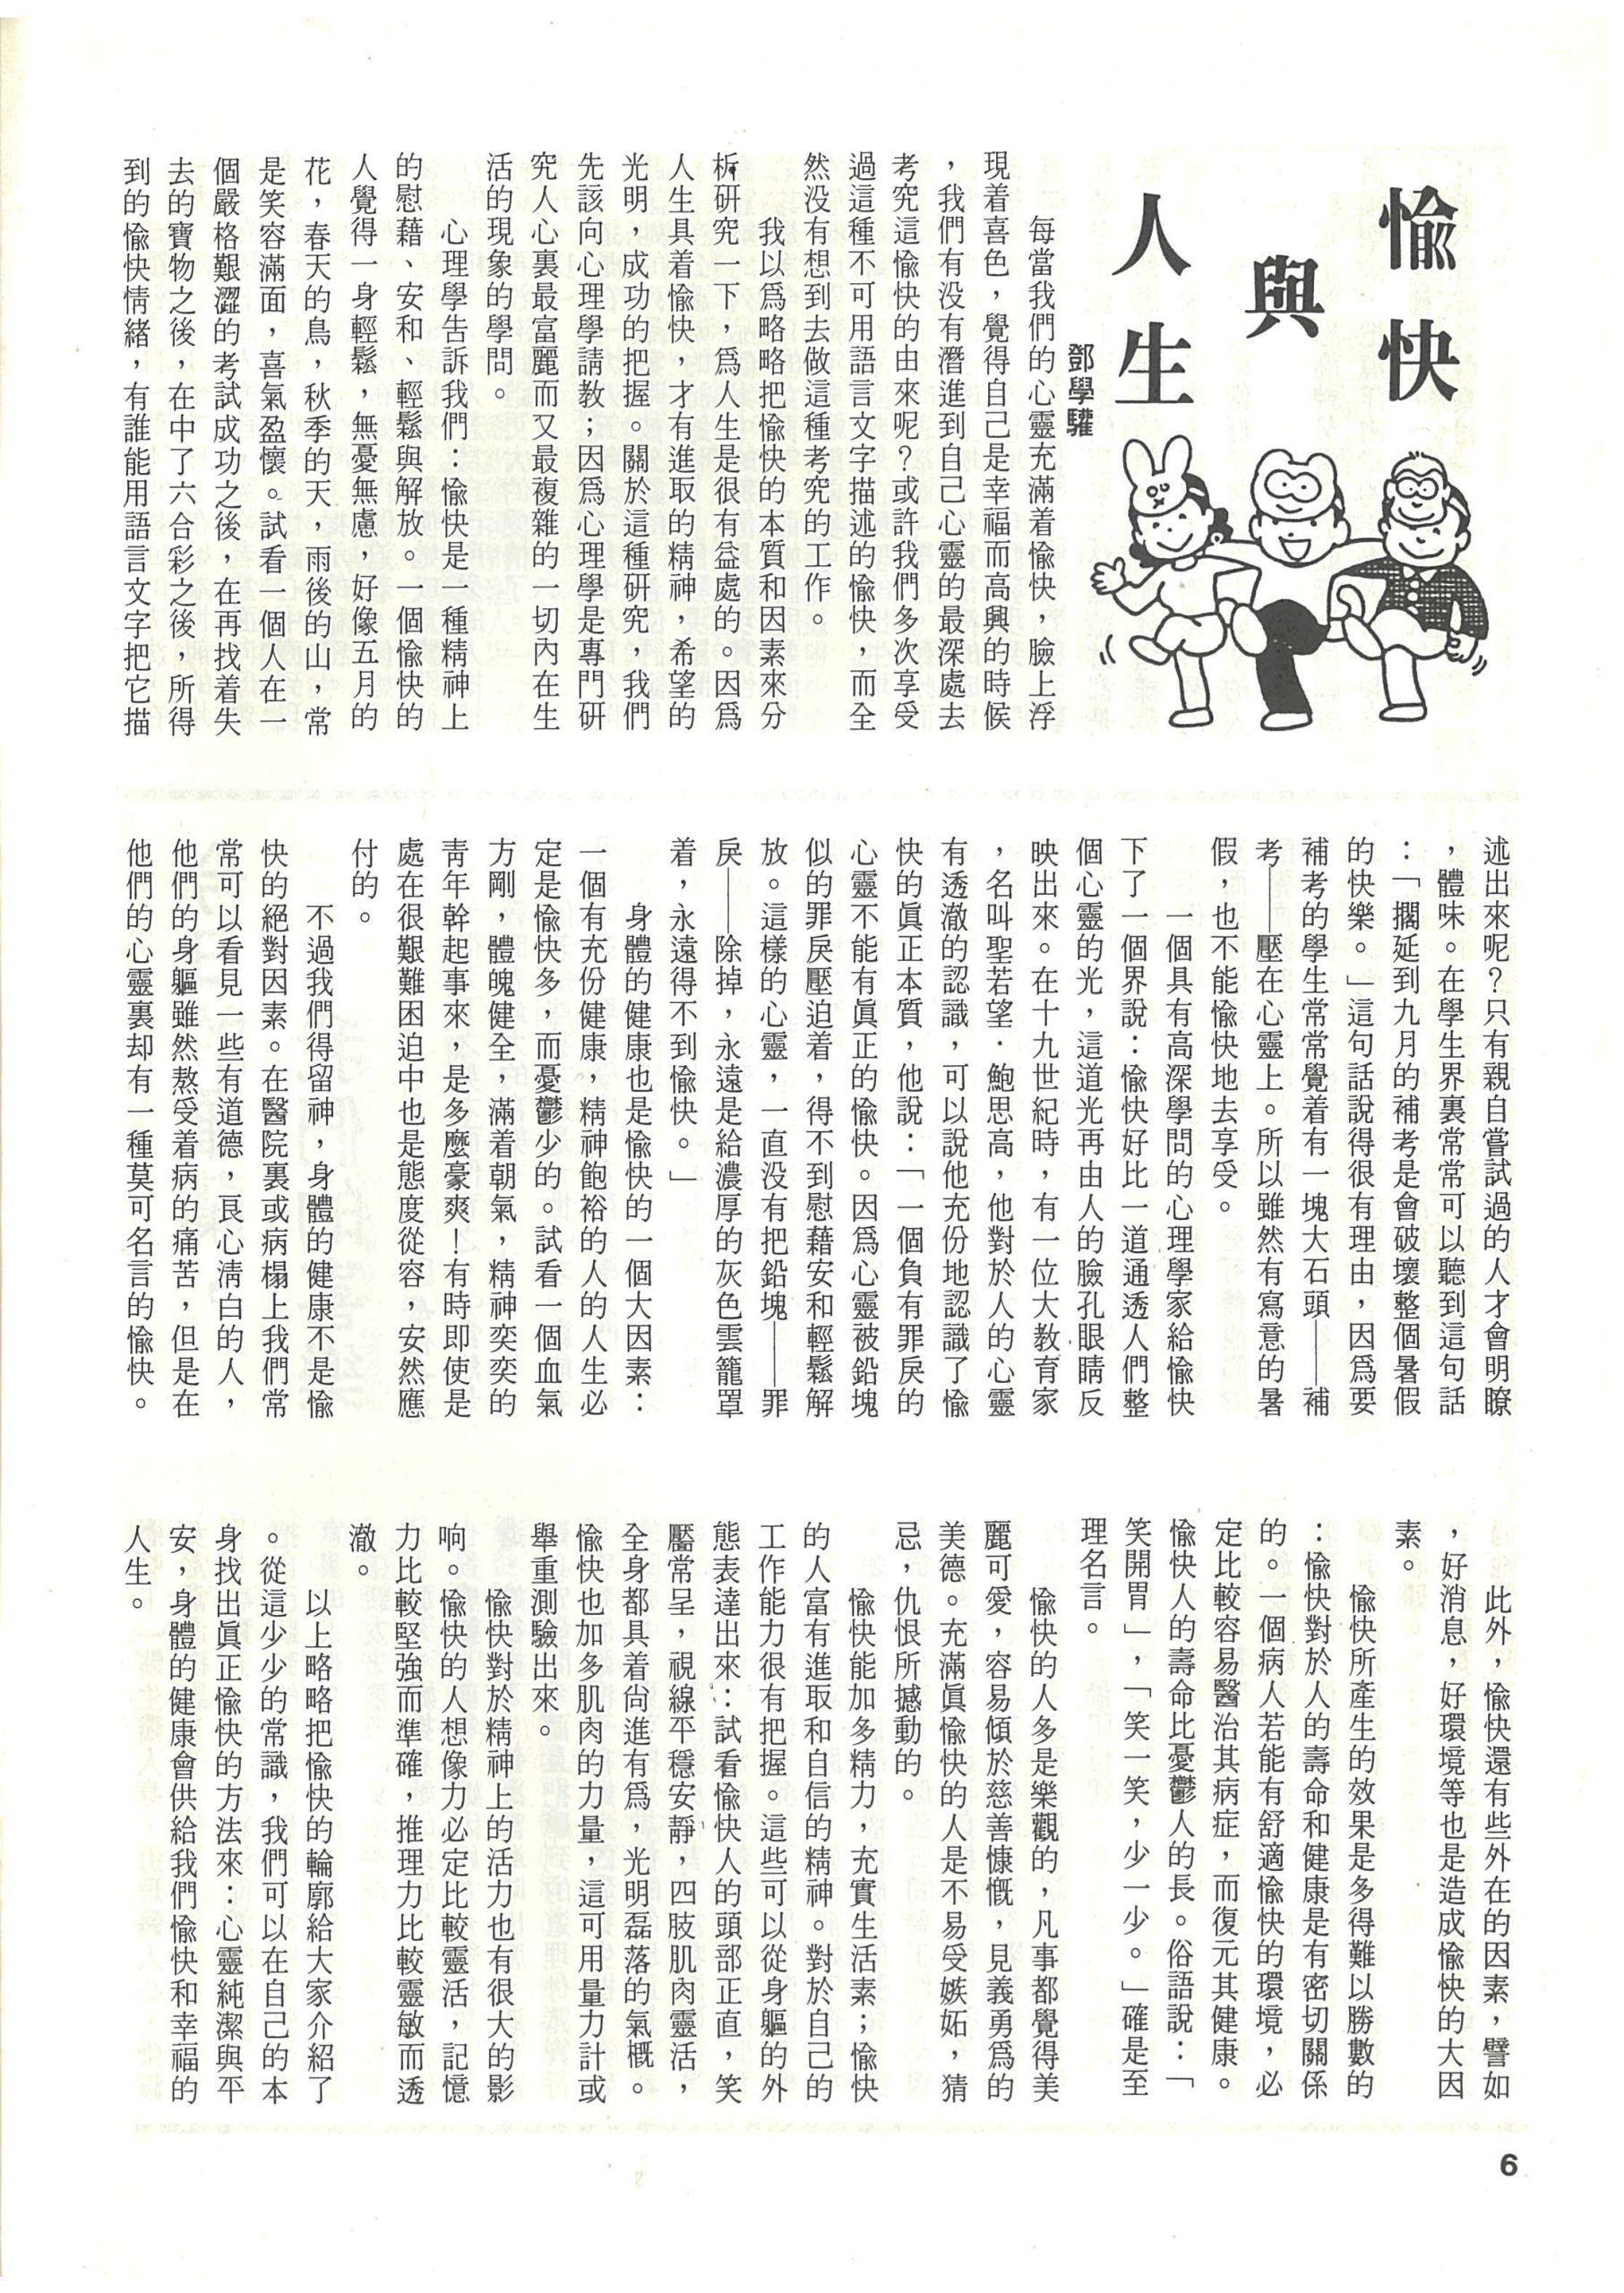 愉快
與
人生
鄧學驩
每當我們的心靈充滿着愉快，臉上浮
現着喜色，覺得自己是幸福而高興的時候
，我們有没有潛進到自己心靈的最深處去
考究這愉快的由來呢？或許我們多次享受
過這種不可用語言文字描述的愉快，而全
然没有想到去做這種考究的工作。
我以爲略略把愉快的本質和因素來分
析研究一下，爲人生是很有益處的。因爲
人生具着愉快，才有進取的精神，希望的
光明，成功的把握。關於這種研究，我們
先該向心理學請教；因爲心理學是專門研
究人心裏最富麗而又最複雜的一切內在生
活的現象的學問。
心理學告訴我們：愉快是一種精神上
的慰藉、安和、輕鬆與解放。一個愉快的
人覺得一身輕鬆，無憂無慮，好像五月的
花，春天的鳥，秋季的天，雨後的山，常
是笑容滿面，喜氣盈懷。試看一個人在一
個嚴格艱澀的考試成功之後，在再找着失
去的寶物之後，在中了六合彩之後，所得
到的愉快情緒，有誰能用語言文字把它描
述出來呢？只有親自嘗試過的人才會明瞭
，體味。在學生界裏常常可以聽到這句話
：「擱延到九月的補考是會破壞整個暑假
的快樂。」這句話說得很有理由，因爲要
補考的學生常常覺着有一塊大石頭——補
考——壓在心靈上。所以雖然有寫意的暑
假，也不能愉快地去享受。
一個具有高深學問的心理學家給愉快
下了一個界說：愉快好比一道通透人們整
個心靈的光，這道光再由人的臉孔眼睛反
映出來。在十九世紀時，有一位大教育家
，名叫聖若望．鮑思高，他對於人的心靈
有透澈的認識，可以說他充份地認識了愉
快的眞正本質，他說：「一個負有罪戾的
心靈不能有眞正的愉快。因爲心靈被鉛塊
似的罪戾壓迫着，得不到慰藉安和輕鬆解
放。這樣的心靈，一直没有把鉛塊——罪
戾——除掉，永遠是給濃厚的灰色雲籠罩
着，永遠得不到愉快。」
身體的健康也是愉快的一個大因素：
一個有充份健康，精神飽裕的人的人生必
定是愉快多，而憂鬱少的。試看一個血氣
方剛，體魄健全，滿着朝氣，精神奕奕的
靑年幹起事來，是多麼豪爽！有時即使是
處在很艱難困迫中也是態度從容，安然應
付的。
不過我們得留神，身體的健康不是愉
快的絕對因素。在醫院裏或病榻上我們常
常可以看見一些有道德，良心淸白的人，
他們的身軀雖然熬受着病的痛苦，但是在
他們的心靈裏却有一種莫可名言的愉快。
此外，愉快還有些外在的因素，譬如
，好消息，好環境等也是造成愉快的大因
素。
愉快所產生的效果是多得難以勝數的
：愉快對於人的壽命和健康是有密切關係
的。一個病人若能有舒適愉快的環境，必
定比較容易醫治其病症，而復元其健康。
愉快人的壽命比憂鬱人的長。俗語說：「
笑開胃」，「笑一笑，少一少。」確是至
理名言。
愉快的人多是樂觀的，凡事都覺得美
麗可愛，容易傾於慈善慷慨，見義勇爲的
美德。充滿眞愉快的人是不易受嫉妬，猜
忌，仇恨所撼動的。
愉快能加多精力，充實生活素；愉快
的人富有進取和自信的精神。對於自己的
工作能力很有把握。這些可以從身軀的外
態表達出來：試看愉快人的頭部正直，笑
靨常呈，視線平穩安靜，四肢肌肉靈活，
全身都具着尙進有爲，光明磊落的氣概。
愉快也加多肌肉的力量，這可用量力計或
舉重測驗出來。
愉快對於精神上的活力也有很大的影
响。愉快的人想像力必定比較靈活，記憶
力比較堅強而準確，推理力比較靈敏而透
澈。
以上略略把愉快的輪廓給大家介紹了
。從這少少的常識，我們可以在自己的本
身找出眞正愉快的方法來：心靈純潔與平
安，身體的健康會供給我們愉快和幸福的
人生。
6